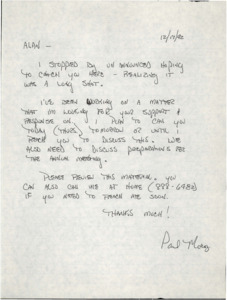 12/17/80
ALAN -
I STOPPED BY UNANNOUNCED HOPING
TO CATCH YOU HERE - REALIZING IT
WAS A LONG SHOT.
I'VE BEEN WORKING ON A MATTER
THAT AM LOOKING FOR YOUR SUPPORT &
RESPONSE ON. I PLAN TO CALL YOU
TODAY (THURS) TOMORROW OR UNTIL I
REACH YOU TO DISCUSS THIS. WE
ALSO NEED TO DISCUSS PREPARATIONS FOR
THE ANNUAL MEETING.
PLEASE REVIEW THIS MATERIAL. YOU
CAN ALSO CALL ME AT HOME
IF YOU NEED TO REACH ME SOON.
THANKS MUCH!
Paul